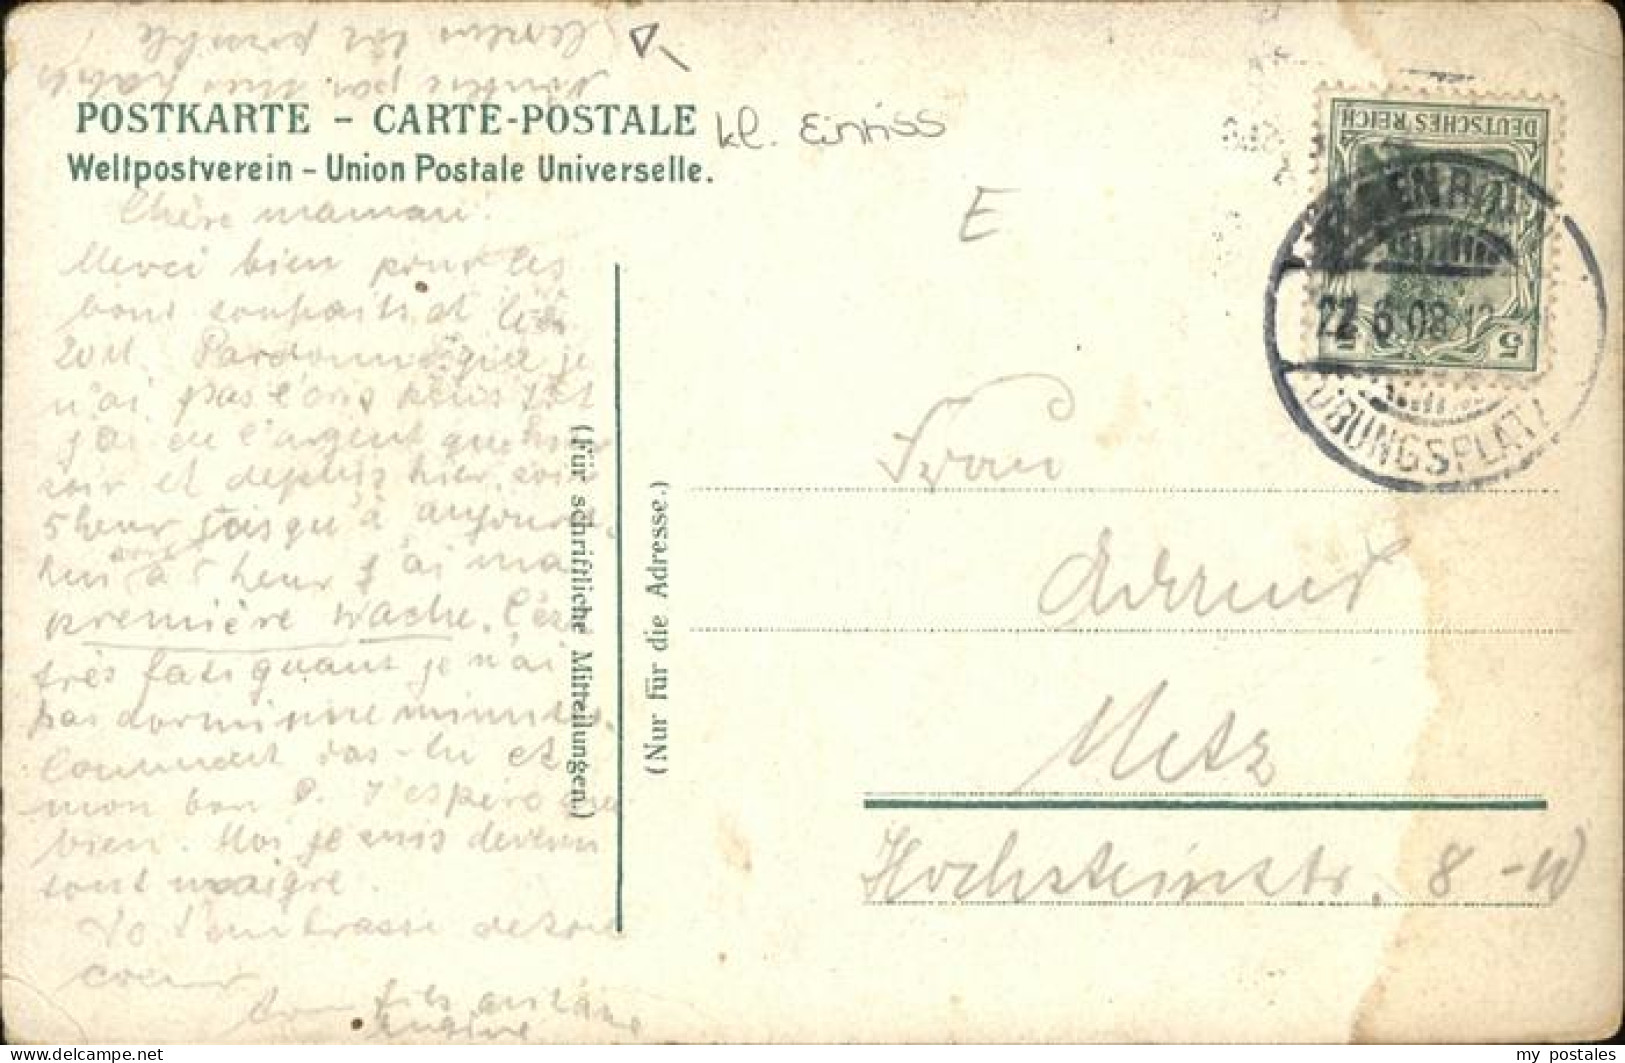 POSTKARTE – CARTE-POSTALE
Weltpostverein – Union Postale Universelle.
kl. Einriss
E
DEUTSCHES REICH
5
22.6.08.12
ÜBUNGSPLATZ
Chère maman!
Merci bien pour les
bons souhaits et les
20 M. Pardonne que je
n'ai pas
j'ai eu l'argent que hier
soir et depuis hier soir
5 heur jusqu'à aujourd.
hui à 5 heur j'ai ma
première wache. C'ést
très quant je n'ai
pas dormi une minute.
Comment vas-tu et
mon bon P. J'espère que
bien. Moi je suis devenu
tout maigre.
t'embrasse de tout
coeur
ton fils
(Für schriftliche Mitteilungen.)
(Nur für die Adresse.)
Frau
Metz
Hochsteinstr. 8 - W
my postales